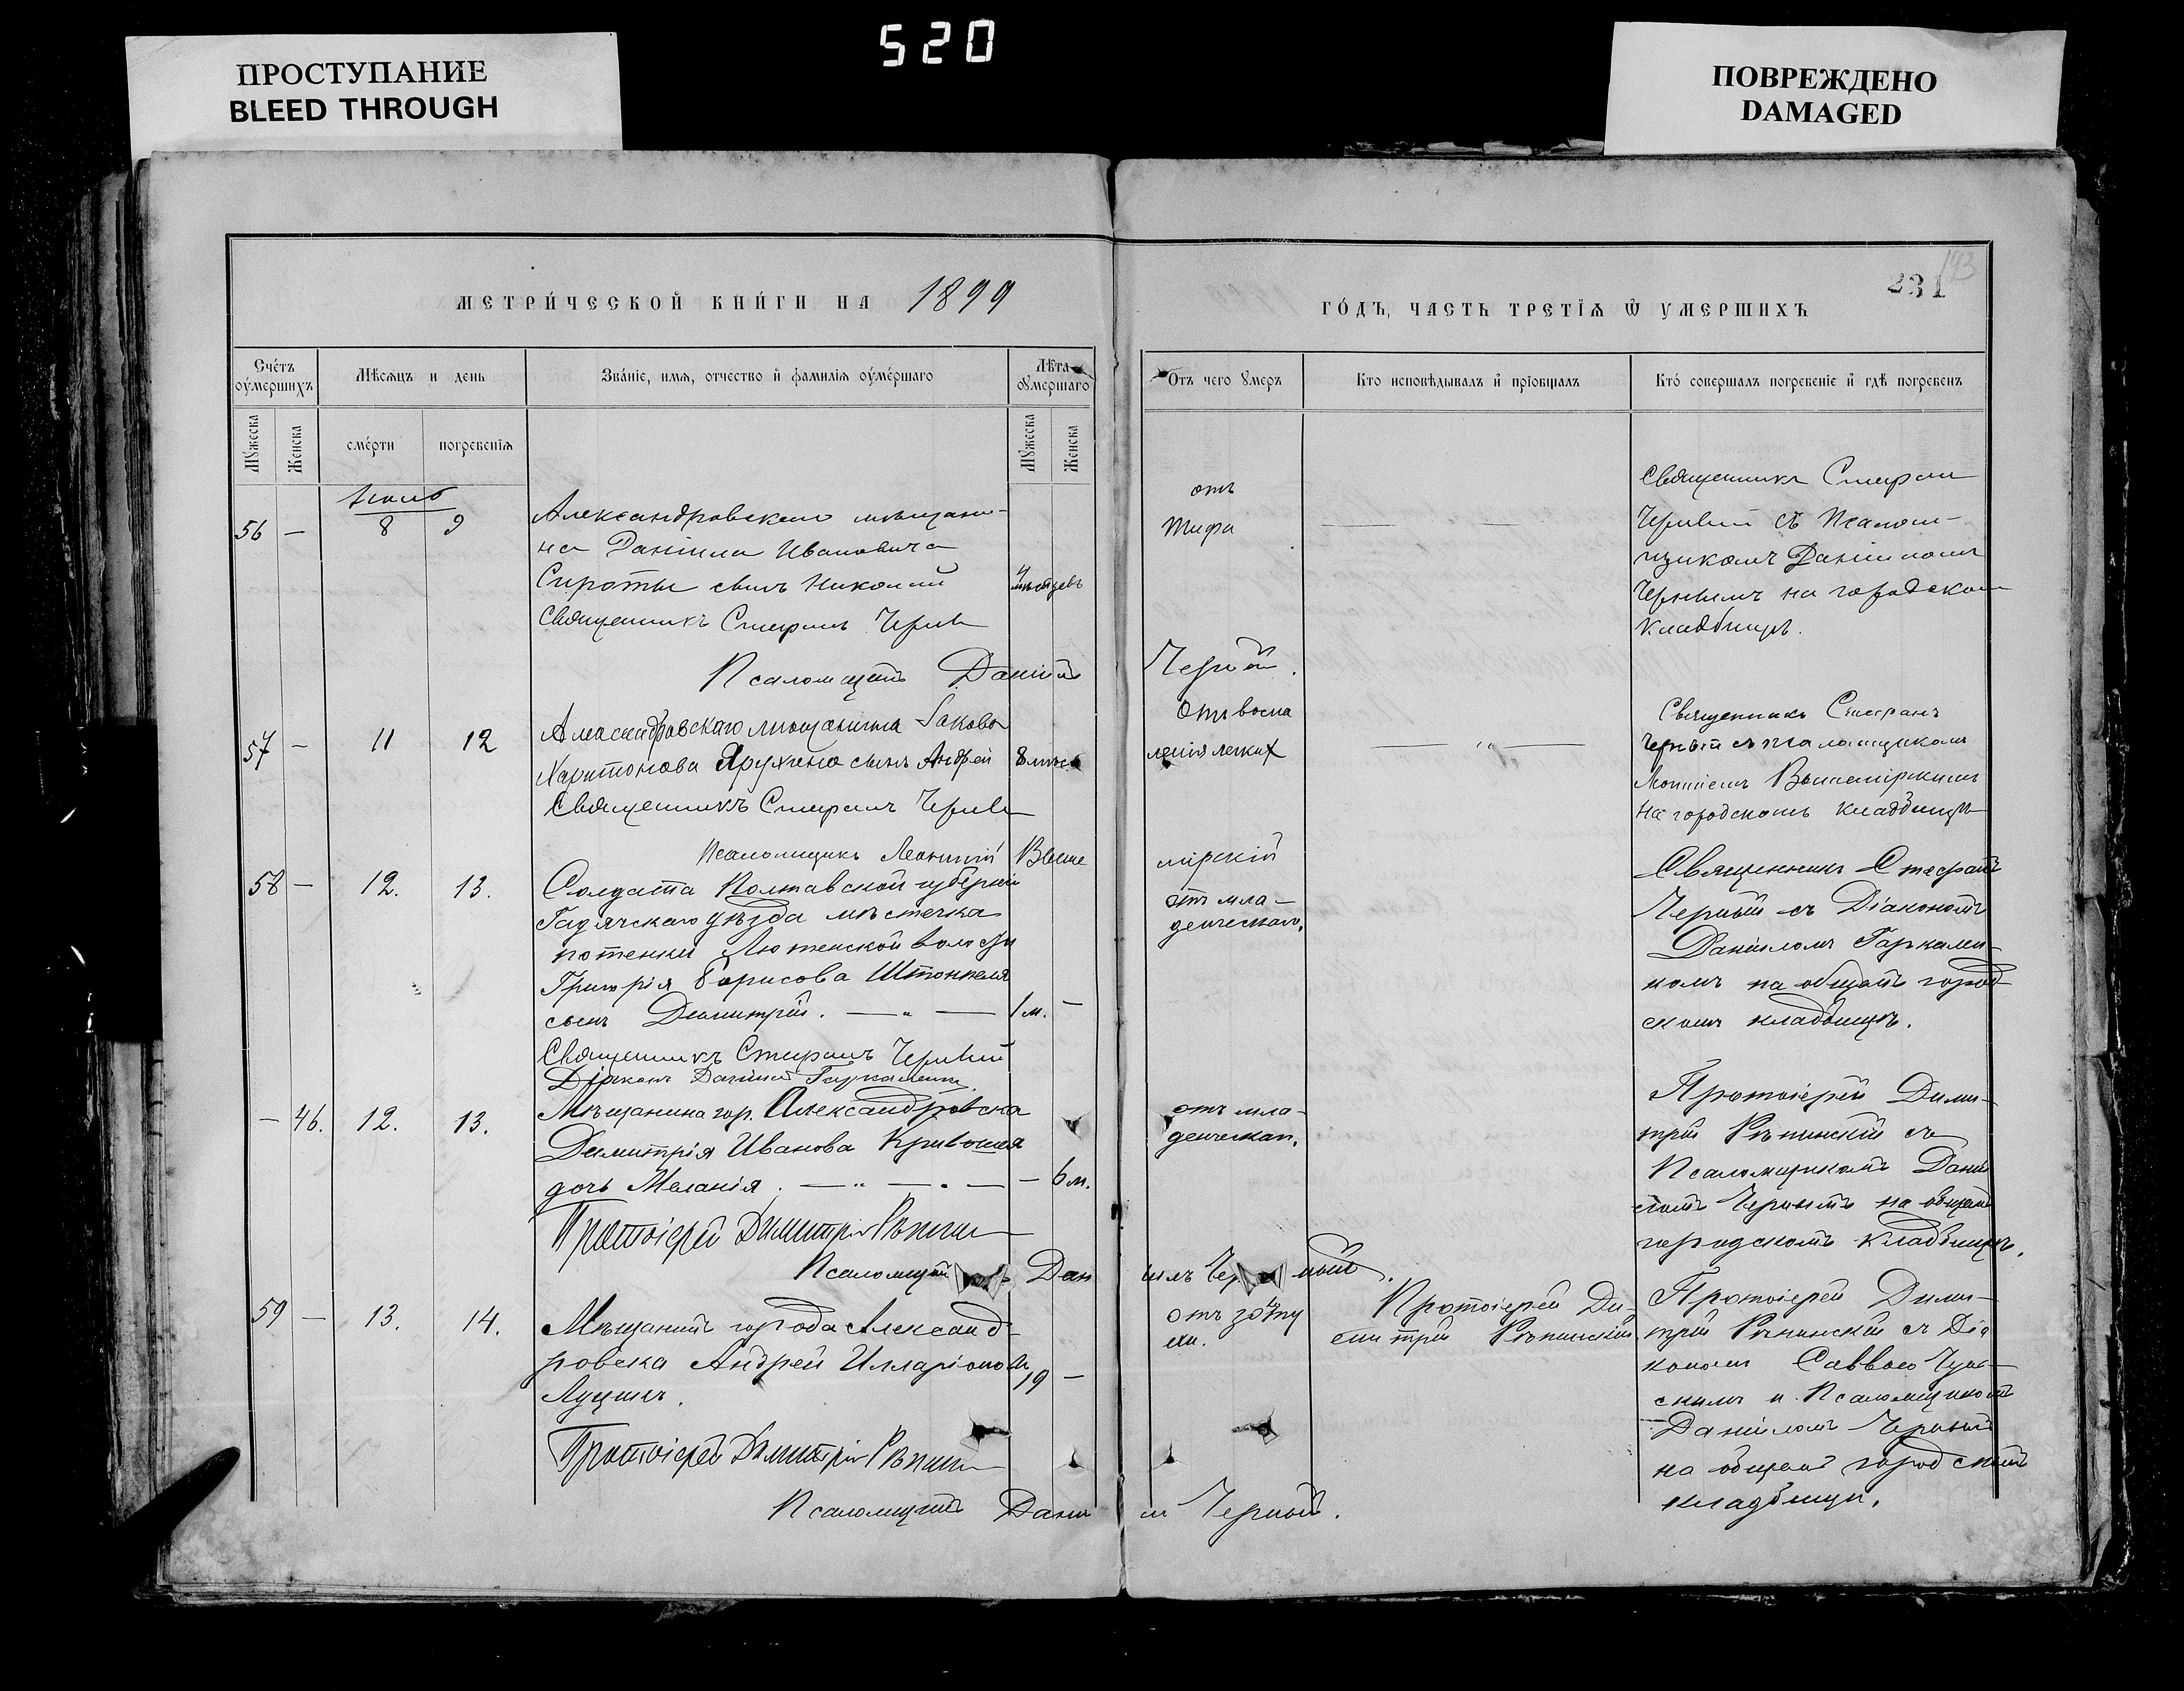 520
ПРОСТУПАНИЕ
BLEED THROUGH
ПОВРЕЖДЕНО
DAMAGED
МЕТРИ́ЧЕСКОЙ КНИ́ГИ НА 1899
ГО́ДЪ, ЧАСТЬ ТРЕТІѦ Ѿ УМЕРШИХЪ
231
143
Сче́тъ оу҆мершихъ
Мѣсѧцъ и день
Зва́ніе, имѧ, отчество и фамиліѧ оу҆ме́ршаго
Лѣта оу҆мершаго
Отъ чего ꙋмеръ
Кто исповѣдывалъ и прїобщалъ
Кто́ совершалъ погребеніе и гдѣ погребенъ
Мꙋжеска
Женска
сме́рти
погребенїѧ
Мꙋжеска
Женска
56 — 8 9
Александровскаго мѣщани-
на Даніила Ивановича
Сироты сынъ Николай
4 мѣсяцевъ
Священникъ Стефанъ Черный
Псаломщикъ Даніилъ Черный.
отъ
тифа
Священникъ Стефанъ
Черный съ Псалом-
щикомъ Даніиломъ
Чернымъ на городском
кладбищѣ.
57 — 11 12
Александровскаго мѣщанина Іакова
Харитонова Яружина сынъ Андрей 8 мѣс.
Священникъ Стефанъ Черный
Псаломщикъ Леонтій Вышемірскій
Отъ воспа
ленія легких
Священникъ Стефанъ
Черный съ псаломщикомъ
Леонтіемъ Вышемірскимъ
на городскомъ кладбищѣ
58 — 12. 13.
Солдата Полтавской губерніи
Гадячскаго уѣзда мѣстечка
Лютенской волости
Григорія Борисова
сынъ Димитрій. — „ — 1 м. —
Священникъ Стефанъ Черный
Діаконъ Даніилъ
отъ мла-
денческаго.
Священникъ Стефанъ
Черный съ Діакономъ
Даніиломъ
комъ на общемъ город-
скомъ кладбищѣ.
— 46. 12. 13.
Мѣщанина гор. Александровска
Димитрія Иванова Кривошея
дочь Меланія. — „ — „ — — 6 м.
Протоіерей Димитрій Рѣпин
Псаломщикъ Даніилъ Черный.
отъ мла-
денческаго.
Протоіерей Дими-
трій Рѣпинскій съ
Псаломщикомъ Даніи
ломъ Чернымъ на общемъ
городскомъ кладбищѣ.
59 — 13. 14.
Мѣщанинъ города Александ-
ровска Андрей Илларіоновъ
Луцикъ.
19 —
Протоіерей Димитрій Рѣпин
Псаломщикъ Даніил Черный.
отъ
Протоіерей Ди-
митрій Рѣпинскій
Протоіерей Дими-
трій Рѣпинскій съ Діа
кономъ Саввою
скимъ и Псаломщикомъ
Даніиломъ Черный
на общемъ городскомъ
кладбищѣ.